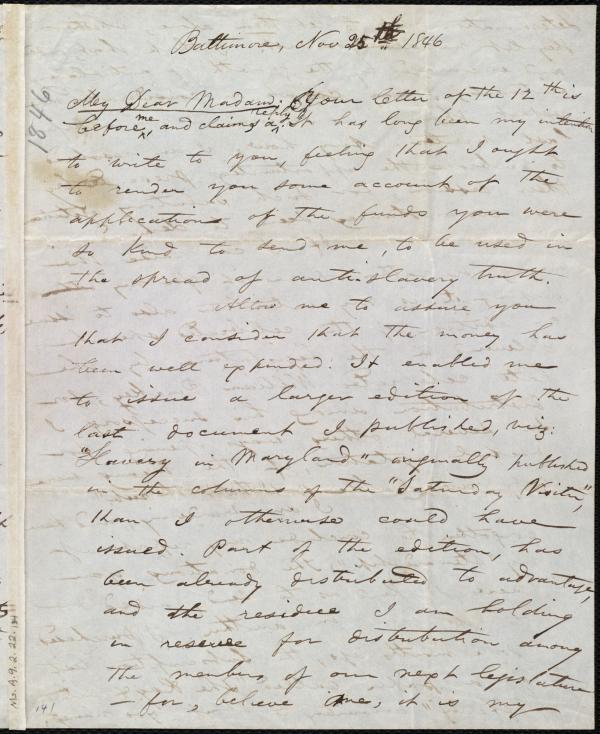 Baltimore, Nov 25th 1846
1846
My Dear Madam; Your letter of the 12th is
before me and claims a reply. It has long been my intention
to write to you, feeling that I ought
to render you some account of the
applications of the funds you were
so kind to send me, to be used in
the spread of anti-slavery truth.
Allow me to assure you
that I consider that the money has
been well expended. It enabled me
to issue a larger edition of the
last document I published, viz:
"Slavery in Maryland" originally published
in the columns of the "Saturday Visiter",
than I otherwise could have
issued. Part of the edition, has
been already distributed to advantage,
and the residue I am holding
in reserve for distribution among
the members of our next legislature
– for, believe me, it is my
Ms. A. 9. 2. 22.
141